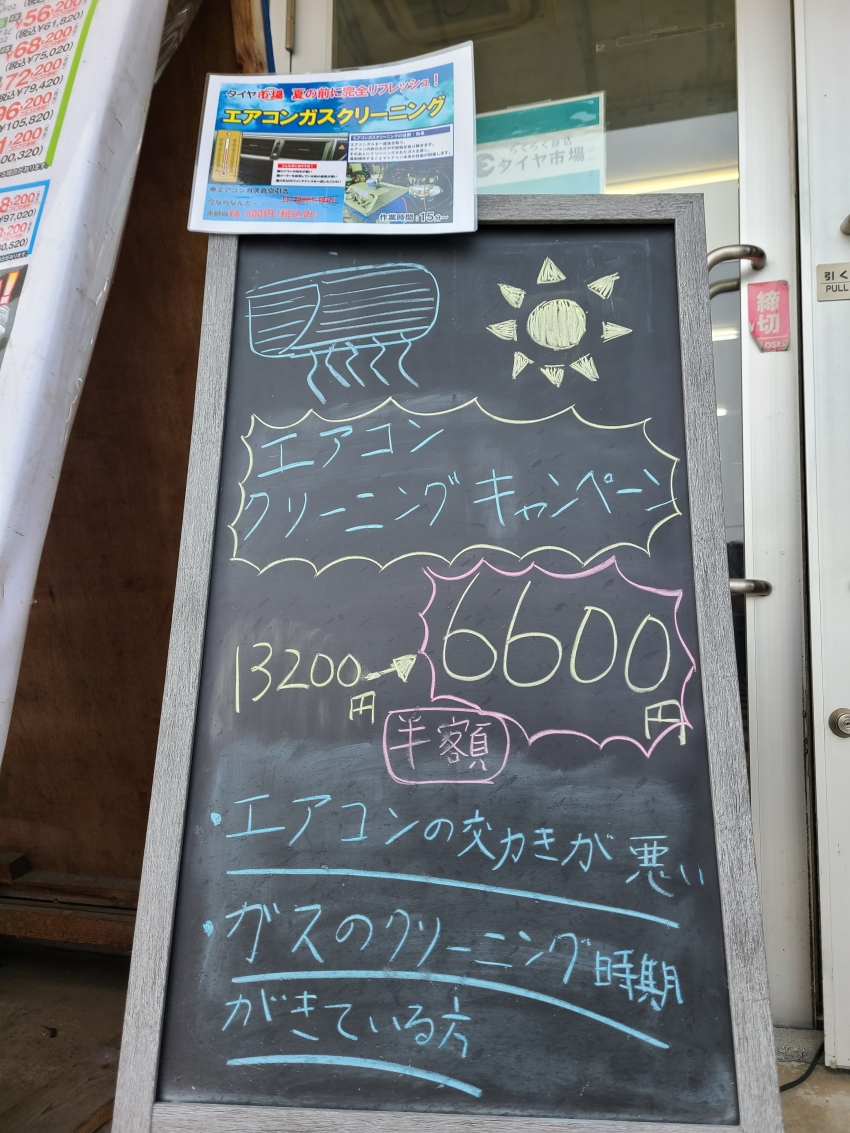 156,200
(税込¥61,820)
68,200
(税込¥75,020)
72,200
(税込¥79,420)
96,200
¥105,820)
1,200
00,320)
8,200
¥97,020)
3,200
0,520)
タイヤ市場 夏の前に完全リフレッシュ!
エアコンガスクリーニング
作業時間:15分〜
らくらく録込
タイヤ市場
締切
引く
PULL
エアコン
クリーニング キャンペーン
13200円
6600円
半額
・エアコンの効きが悪い
・ガスのクリーニング時期
がきている方